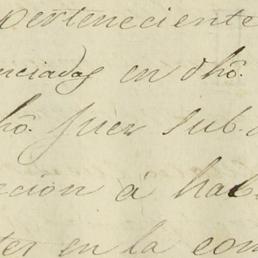 perteneciente
nciadas en dhô.
hô. Juer sub.
ccion á hab
ter en la com